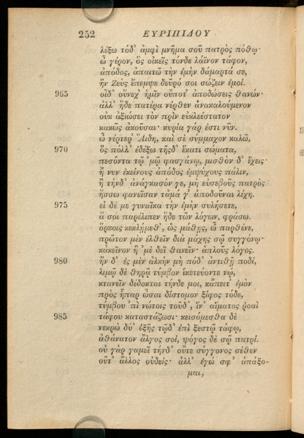 252 ΕΥΡΙΠΙΔΟΥ
λέξω τάδ᾽ ἀμφὶ μνῆμα σοῦ πατρὸς πόθῳ·
ὦ γέρον, ὃς οἰκεῖς τόνδε λάϊνον τάφον,
ἀπόδος, ἀπαιτῶ τὴν ἐμὴν δάμαρτά σε,
ἣν Ζεὺς ἔπεμψε δεῦρό σοι σώζειν ἐμοί.
965 οἶδ᾽ οὕνεχ᾽ ἡμῖν οὔποτ᾽ ἀποδώσεις θανών·
ἀλλ᾽ ἥδε πατέρα νέρθεν ἀνακαλούμενον
οὐκ ἀξιώσει τὸν πρὶν εὐκλεέστατον
κακῶς ἀκοῦσαι· κυρία γάρ ἐστι νῦν.
ὦ νέρτερ᾽ Ἅιδη, καὶ σὲ σύμμαχον καλῶ,
970 ὃς πόλλ᾽ ἐδέξω τῆσδ᾽ ἕκατι σώματα,
πεσόντα τῷ ᾽μῷ φασγάνῳ, μισθὸν δ᾽ ἔχεις·
ἢ νῦν ἐκείνους ἀπόδος ἐμψύχους πάλιν,
ἢ τήνδ᾽ ἀνάγκασόν γε, μὴ εὐσεβοῦς πατρὸς
ἥσσω φανεῖσαν τἀμά γ᾽ ἀποδοῦναι λέχη.
975 εἰ δέ με γυναῖκα τὴν ἐμὴν συλήσετε,
ἅ σοι παρέλιπεν ἥδε τῶν λόγων, φράσω.
ὅρκοις κεκλῄμεθ᾽, ὡς μάθῃς, ὦ παρθένε,
πρῶτον μὲν ἐλθεῖν διὰ μάχης σῷ συγγόνῳ·
κἀκεῖνον ἢ ᾽μὲ δεῖ θανεῖν· ἁπλοῦς λόγος.
980 ἢν δ᾽ ἐς μὲν ἀλκὴν μὴ πόδ᾽ ἀντιθῇ ποδί,
λιμῷ δὲ θηρᾷ τύμβον ἱκετεύοντε νώ,
κτανεῖν δέδοκται τήνδε μοι, κἄπειτ᾽ ἐμὸν
πρὸς ἧπαρ ὦσαι δίστομον ξίφος τόδε,
τύμβου ᾽πὶ νώτοις τοῦδ᾽, ἵν᾽ αἵματος ῥοαὶ
985 τάφου καταστάζωσι· κεισόμεσθα δὲ
νεκρὼ δύ᾽ ἑξῆς τῷδ᾽ ἐπὶ ξεστῷ τάφῳ,
ἀθάνατον ἄλγος σοί, ψόγος δὲ σῷ πατρί.
οὐ γὰρ γαμεῖ τήνδ᾽ οὔτε σύγγονος σέθεν
οὔτ᾽ ἄλλος οὐδείς· ἀλλ᾽ ἐγώ σφ᾽ ἀπάξο-
μαι,